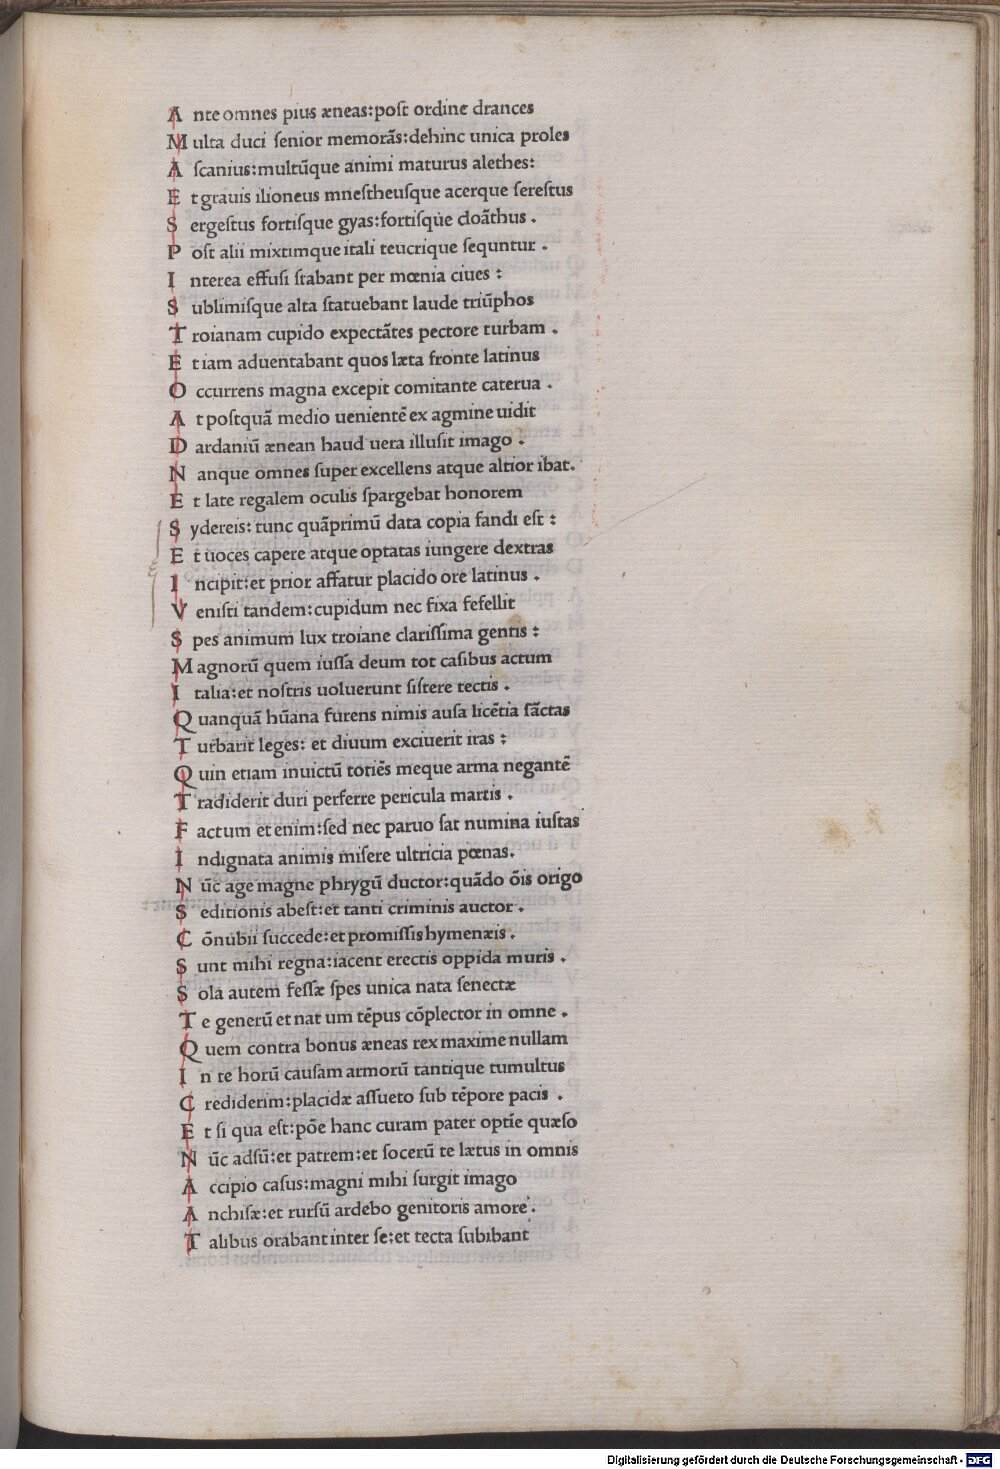 A nte omnes pius æneas:poſt ordine drances
M ulta duci ſenior memorãs:dehinc unica proles
A ſcanius:multũque animi maturus alethes:
E t grauis ilioneus mneſtheuſque acerque ſereſtus
S ergeſtus fortiſque gyas:fortiſque cloãthus .
P oſt alii mixtimque itali teucrique ſequntur .
I nterea effuſi ſtabant per mœnia ciues :
S ublimiſque alta ſtatuebant laude triũphos
T roianam cupido expectãtes pectore turbam .
E t iam aduentabant quos læta fronte latinus
O ccurrens magna excepit comitante caterua .
A t poſtquã medio uenientẽ ex agmine uidit
D ardaniũ ænean haud uera illuſit imago .
N anque omnes ſuper excellens atque altior ibat.
E t late regalem oculis ſpargebat honorem
S ydereis: tunc quãprimũ data copia fandi eſt :
E t uoces capere atque optatas iungere dextras
I ncipit:et prior affatur placido ore latinus .
V eniſti tandem:cupidum nec fixa fefellit
S pes animum lux troiane clariſſima gentis :
M agnorũ quem iuſſa deum tot caſibus actum
I talia:et noſtris uoluerunt ſiſtere tectis .
Q uanquã hũana furens nimis auſa licẽtia ſãctas
T urbarit leges: et diuum exciuerit iras :
Q uin etiam inuictũ totiẽs meque arma negantẽ
T radiderit duri perferre pericula martis .
F actum et enim:ſed nec paruo ſat numina iuſtas
I ndignata animis miſere ultricia pœnas.
N ũc age magne phrygũ ductor:quãdo õis origo
S editionis abeſt:et tanti criminis auctor .
C õnubii ſuccede:et promiſſis hymenæis .
S unt mihi regna:iacent erectis oppida muris .
S ola autem feſſæ ſpes unica nata ſenectæ
T e generũ et nat um tẽpus cõplector in omne .
Q uem contra bonus æneas rex maxime nullam
I n te horũ cauſam armorũ tantique tumultus
C rediderim:placidæ aſſueto ſub tẽpore pacis .
E t ſi qua eſt:põe hanc curam pater optĩe quæſo
N ũc adſũ:et patrem:et ſocerũ te lætus in omnis
A ccipio caſus:magni mihi ſurgit imago
A nchiſæ:et rurſũ ardebo genitoris amore .
T alibus orabant inter ſe:et tecta ſubibant
Digitalisierung gefördert durch die Deutsche Forschungsgemeinschaft - DFG